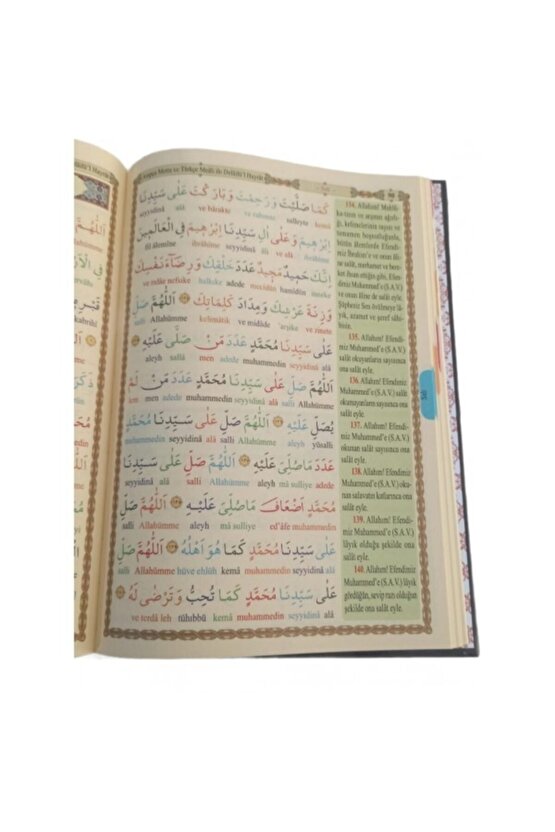 Arapça Metin ve Türkçe Meâli ile Delâilü'l Hayrât
كَمَا صَلَّيْتَ وَرَحِمْتَ وَبَارَكْتَ عَلٰى سَيِّدِنَا
seyyidinâ alâ ve bârakte ve rahımte salleyte kemâ
اِبْرٰهِيمَ وَعَلٰى اٰلِ سَيِّدِنَا اِبْرٰهِيمَ فِى الْعَالَمِينَ
fil âlemîne ibrâhîme seyyidinâ âli ve alâ ibrâhîme
اِنَّكَ حَمِيدٌ مَجِيدٌ عَدَدَ خَلْقِكَ وَرِضَاۤءَ نَفْسِكَ
ve rıdâe nefsike halkıke adede mecîdün hamîdün inneke
وَزِنَةَ عَرْشِكَ وَمِدَادَ كَلِمَاتِكَ اَللّٰهُمَّ صَلِّ
salli Allahümme kelimâtik ve midâde arşike ve zinete
عَلٰى سَيِّدِنَا مُحَمَّدٍ عَدَدَ مَنْ صَلّٰى عَلَيْهِ
aleyh sallâ men adede muhammedin seyyidinâ alâ
اَللّٰهُمَّ صَلِّ عَلٰى سَيِّدِنَا مُحَمَّدٍ عَدَدَ مَنْ لَمْ
lem men adede muhammedin seyyidinâ alâ salli Allahümme
يُصَلِّ عَلَيْهِ اَللّٰهُمَّ صَلِّ عَلٰى سَيِّدِنَا مُحَمَّدٍ
muhammedin seyyidinâ alâ salli Allahümme aleyh yüsalli
عَدَدَ مَاصُلِّىَ عَلَيْهِ اَللّٰهُمَّ صَلِّ عَلٰى سَيِّدِنَا
seyyidinâ alâ salli Allahümme aleyh mâ sulliye adede
مُحَمَّدٍ اَضْعَافَ مَاصُلِّىَ عَلَيْهِ اَللّٰهُمَّ صَلِّ
salli Allahümme aleyh mâ sulliye ed'âfe muhammedin
عَلٰى سَيِّدِنَا مُحَمَّدٍ كَمَا هُوَ اَهْلُهُ اَللّٰهُمَّ صَلِّ
salli Allahümme hüve ehlüh kemâ muhammedin seyyidinâ alâ
عَلٰى سَيِّدِنَا مُحَمَّدٍ كَمَا تُحِبُّ وَتَرْضٰى لَهُ
ve terdâ leh tühıbbü kemâ muhammedin seyyidinâ alâ
134. Allahım!
ka-tının ve arşının ağırlı-
ğı, kelimelerinin sayısı ve
bütün âlemlerde Efendi-
miz İbrahim'e ve onun âli-
ne salât, merhamet ve bere-
ket ihsan ettiğin gibi, Efendi-
miz Muhammed'e (S.A.V.)
ve onun âline de salât eyle.
Şüphesiz Sen övülmeye lâ-
yık, azamet ve şeref sâhi-
bisin.
135. Allahım! Efendi-
miz Muhammed'e (S.A.V.)
salât okuyanların sayısınca
ona salât eyle.
136. Allahım! Efendimiz
Muhammed'e (S.A.V.) salât
okumayanların sayısınca ona
salât eyle.
137. Allahım! Efendi-
miz Muhammed'e (S.A.V.)
okunan salât sayısınca ona
salât eyle.
138. Allahım! Efendimiz
Muhammed'e (S.A.V.) oku-
nan salavatın katlarınca ona
salât eyle.
139. Allahım! Efendi-
miz Muhammed'e (S.A.V.)
lâyık olduğu şekilde ona
salât eyle.
140. Allahım! Efendimiz
Muhammed'e (S.A.V.) lâyık
gördüğün, sevip razı olduğun
şekilde ona salât eyle.